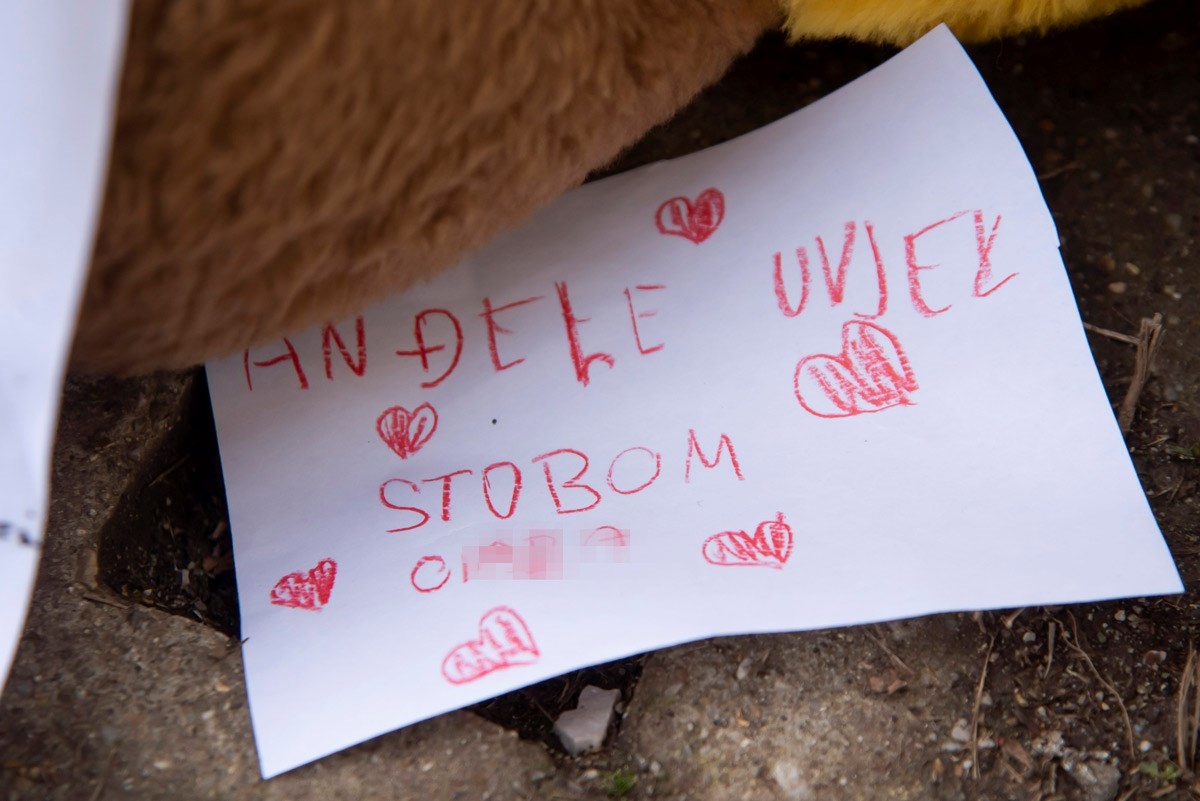 ANĐELE UVJEK
STOBOM